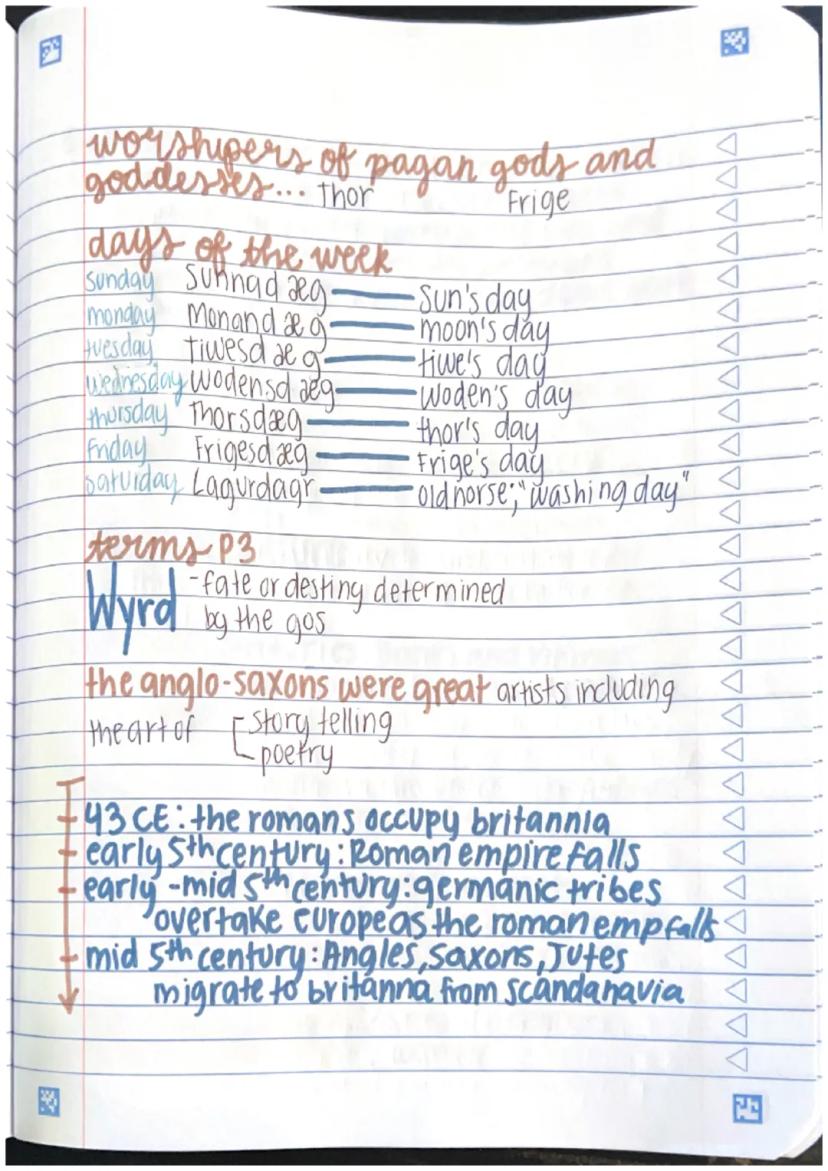 worshipers of pagan gods and
goddesses... Thor Frige
days of the week
sunday Sunnad æg — Sun's day
monday Monand æ g — moon's day
tuesday tiwesd æ g — tiwe's day
wednesday Wodensd æg — Woden's day
thursday Thorsdæg — thor's day
friday Frigesdæg — Frige's day
saturday Lagurdagr — old norse; "washing day"
terms P3
Wyrd - fate or destiny determined
by the gos
the anglo-saxons were great artists including
the art of story telling
poetry
43 CE: the romans occupy britannia
early 5th century: Roman empire falls
early -mid 5th century: germanic tribes
overtake Europe as the roman emp falls
mid 5th century: Angles, Saxons, Jutes
migrate to britanna from scandanavia